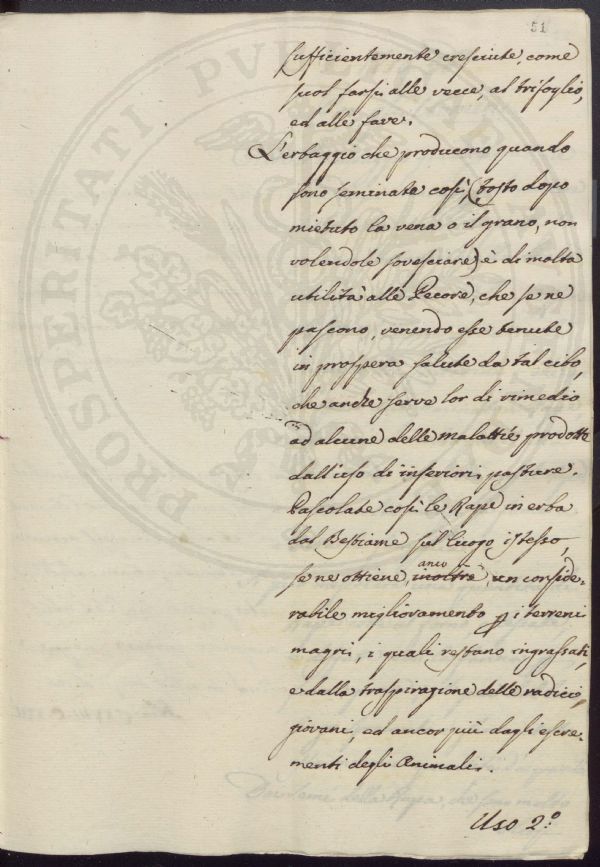 51
sufficientemente cresciute, come
suol farsi alle vecce, al trifoglio,
ed alle fave.
L'erbaggio che producono quando
sono seminate così, (tosto dopo
mietuto la vena o il grano, non
volendole sovesciare) è di molta
utilità alle Pecore, che se ne
pascono, venendo esse tenute
in prospera salute da tal cibo,
che anche serve lor di rimedio
ad alcune delle malattie prodotte
dall'uso di inferiori pasture.
Pascolate così le Rape in erba
dal Bestiame sul luogo istesso,
se ne ottiene, anco inoltre, un conside-
rabile miglioramento p i terreni
magri, i quali restano ingrassati,
e dalla traspirazione delle radici
giovani, ed ancor più dagli escre-
menti degli Animali.
Uso 2.º
PROSPERITATI PUBLICAE